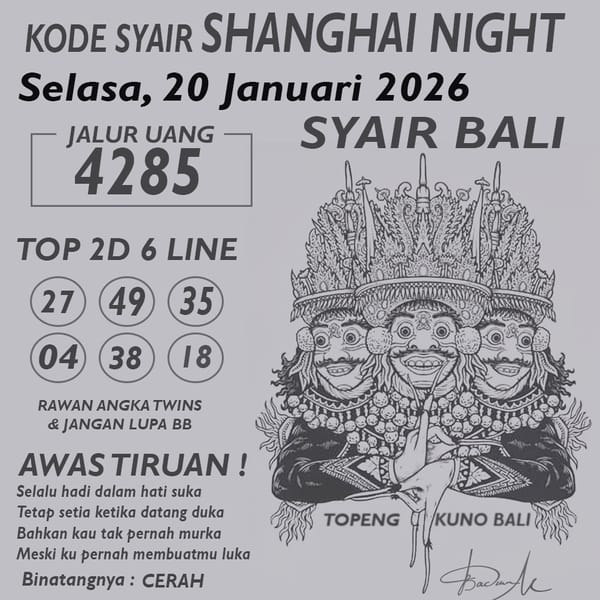 KODE SYAIR SHANGHAI NIGHT
Selasa, 20 Januari 2026
JALUR UANG
4285
SYAIR BALI
TOP 2D 6 LINE
27 49 35
04 38 18
RAWAN ANGKA TWINS
& JANGAN LUPA BB
AWAS TIRUAN !
Selalu hadi dalam hati suka
Tetap setia ketika datang duka
Bahkan kau tak pernah murka
Meski ku pernah membuatmu luka
Binatangnya : CERAH
TOPENG KUNO BALI